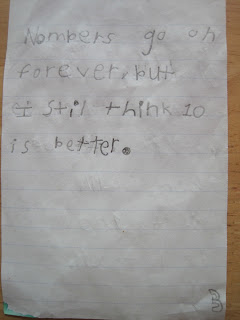 Nombers go on
forever, but
I stil think 10
is better.